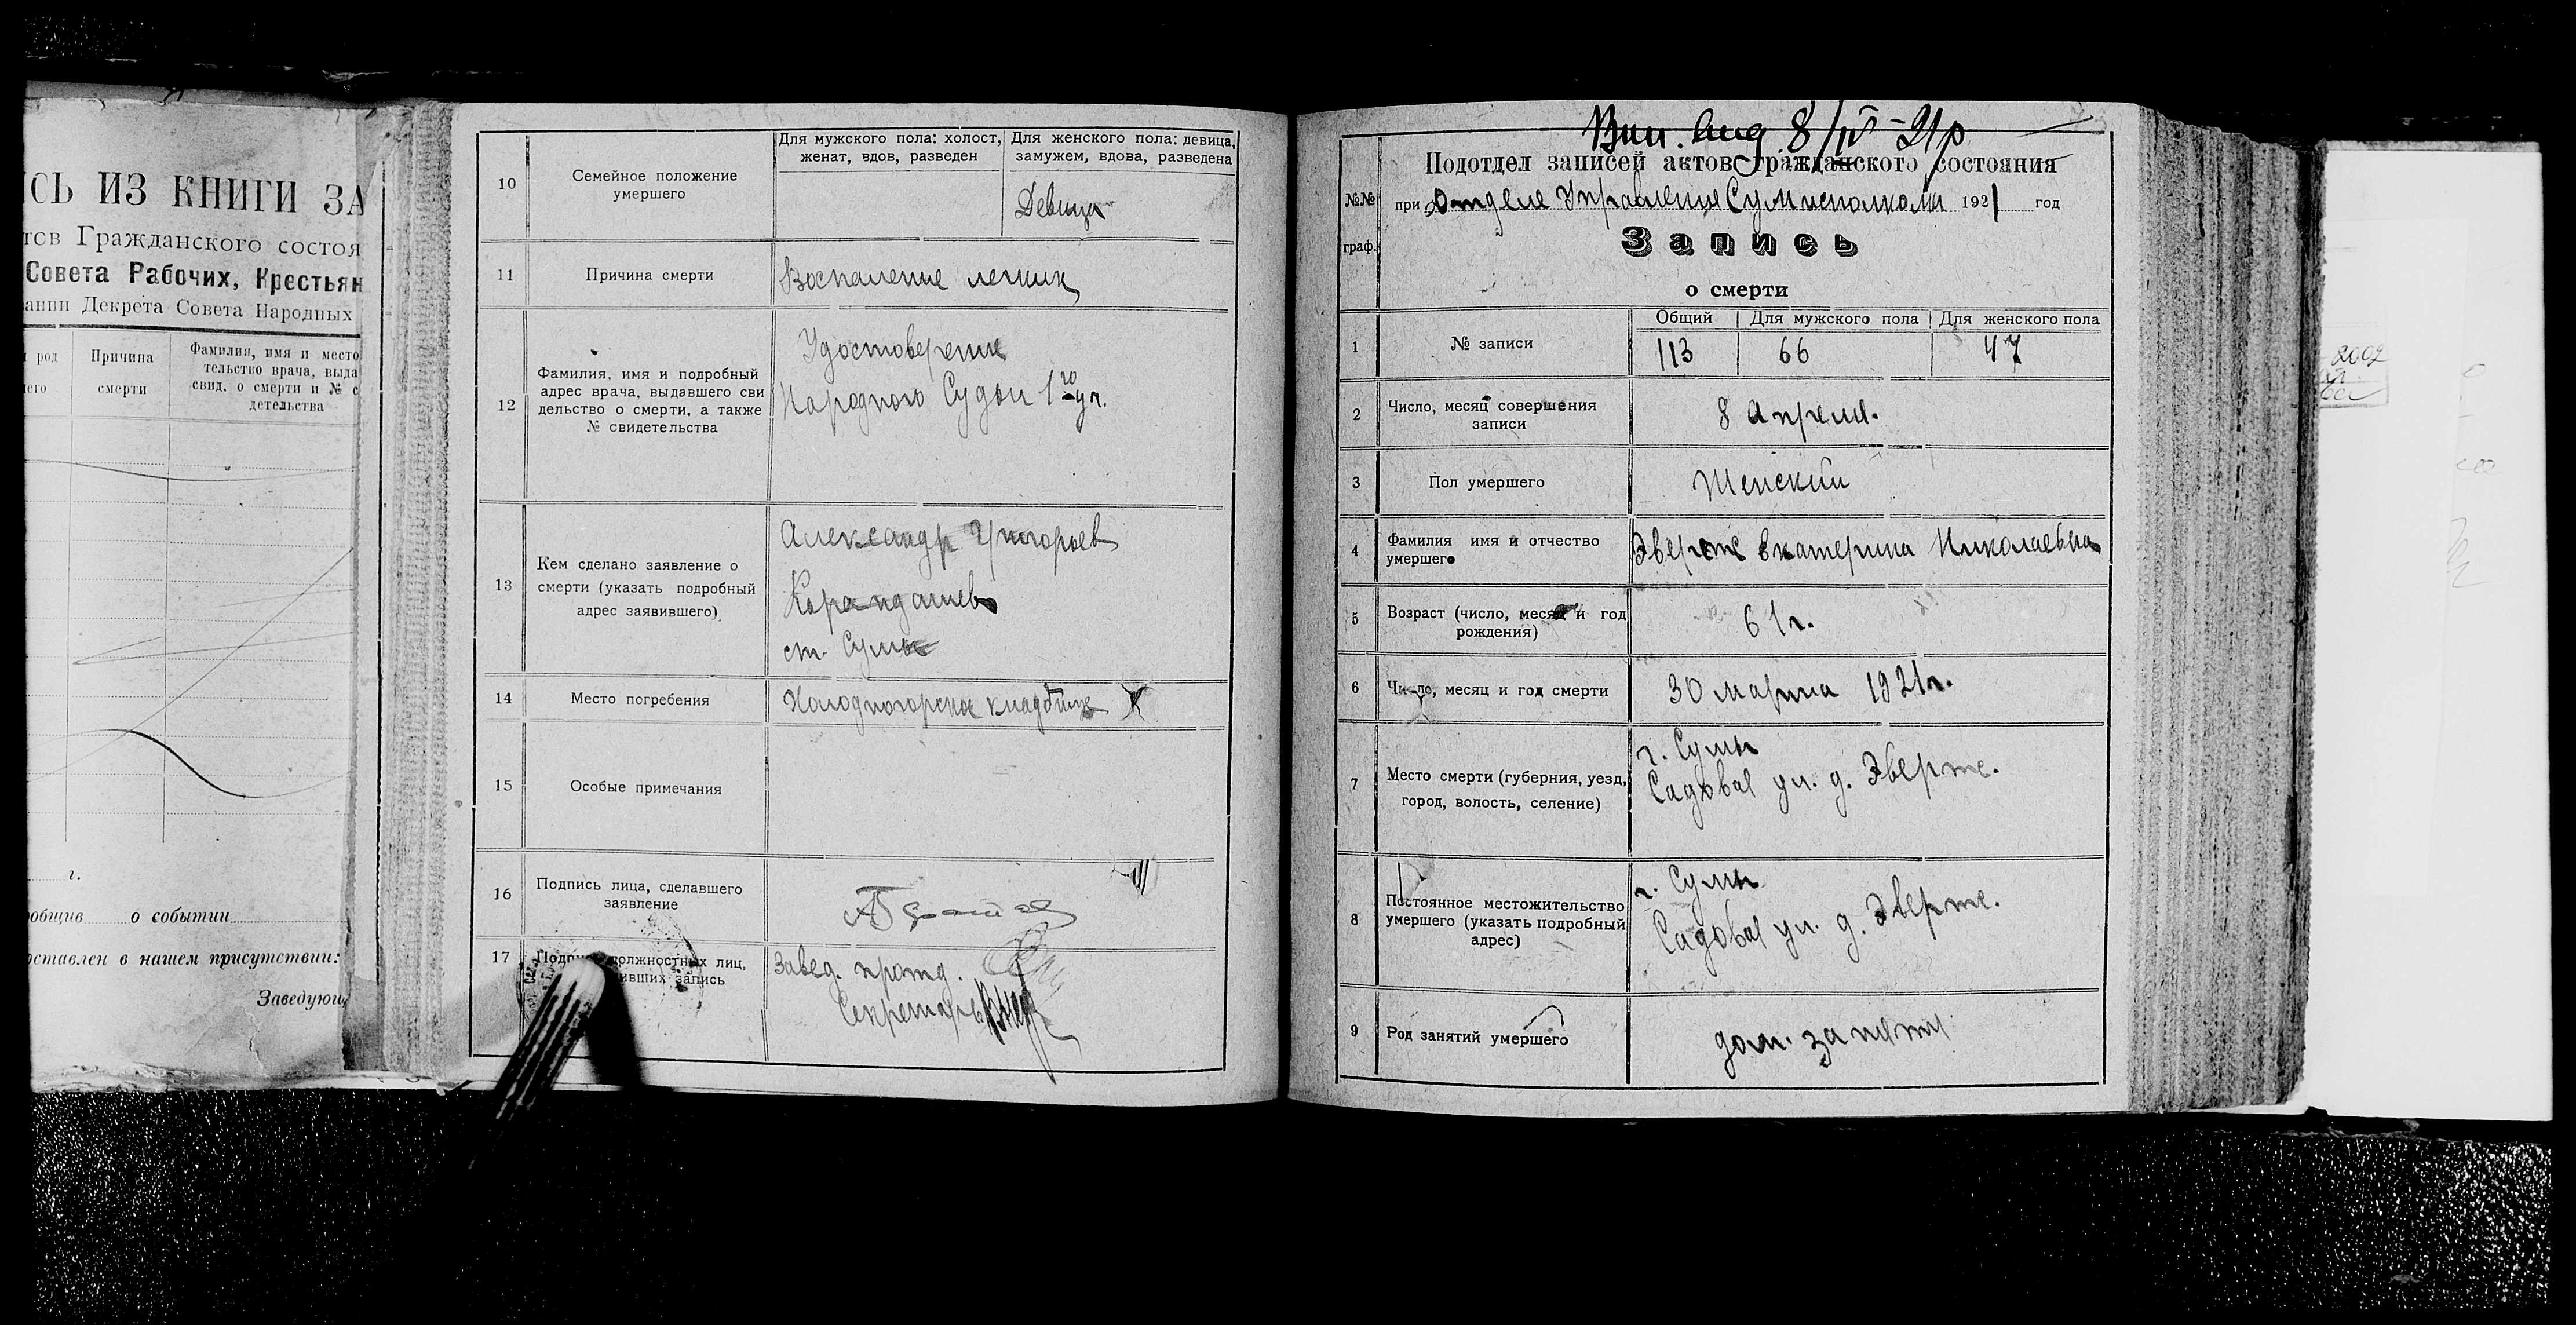 СЬ ИЗ КНИГИ ЗА
тов Гражданского состоя
Совета Рабочих, Крестьян
ании Декрета Совета Народных
род
его
Причина
смерти
Фамилия, имя и место
тельство врача, выда
свид. о смерти и № с
детельства
г.
общив о событии
оставлен в нашем присутствии:
Заведующ
10
Семейное положение
умершего
Для мужского пола: холост,
женат, вдов, разведен
Для женского пола: девица,
замужем, вдова, разведена
Девица
11
Причина смерти
Воспаление легких
12
Фамилия, имя и подробный
адрес врача, выдавшего сви
дельство о смерти, а также
№ свидетельства
Удостоверение
Народного Судьи 1го уч.
13
Кем сделано заявление о
смерти (указать подробный
адрес заявившего)
Александр Григорьев
Карандашев
ст. Сумы
14
Место погребения
Холодногорское кладбище
15
Особые примечания
16
Подпись лица, сделавшего
заявление
17
должностных лиц,
ивших запись
Завед. подотд.
Секретарь
8/IV-21р
Подотдел записей актов гражданского состояния
№№
граф.
при Отделе Управления Сумисполкома 1921 год
Запись
о смерти
1
№ записи
Общий
Для мужского пола
Для женского пола
113
66
47
2
Число, месяц совершения
записи
8 Апреля.
3
Пол умершего
Женский
4
Фамилия имя и отчество
умершего
Эверте Екатерина Николаевна
5
Возраст (число, месяц и год
рождения)
61 г.
6
Число, месяц и год смерти
30 марта 1921 г.
7
Место смерти (губерния, уезд,
город, волость, селение)
г. Сумы
Садовая ул. д. Эверте.
8
Постоянное местожительство
умершего (указать подробный
адрес)
г. Сумы
Садовая ул. д. Эверте.
9
Род занятий умершего
дом. занятия
2002